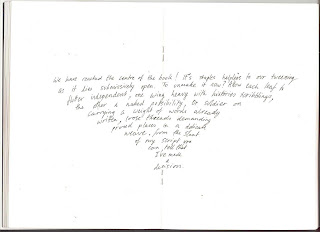 We have reached the centre of the book! It's staples helpless to our tweezing
as it lies submissively open. To unmake it now? Allow each leaf to
flutter independent, one wing heavy with histories scribblings,
the other a naked possibility, to soldier on
carrying a weight of words already
written, loose threads demanding
proud places in a delicate
weave. From the slant
of my script you
can tell that
I've made
a
decision